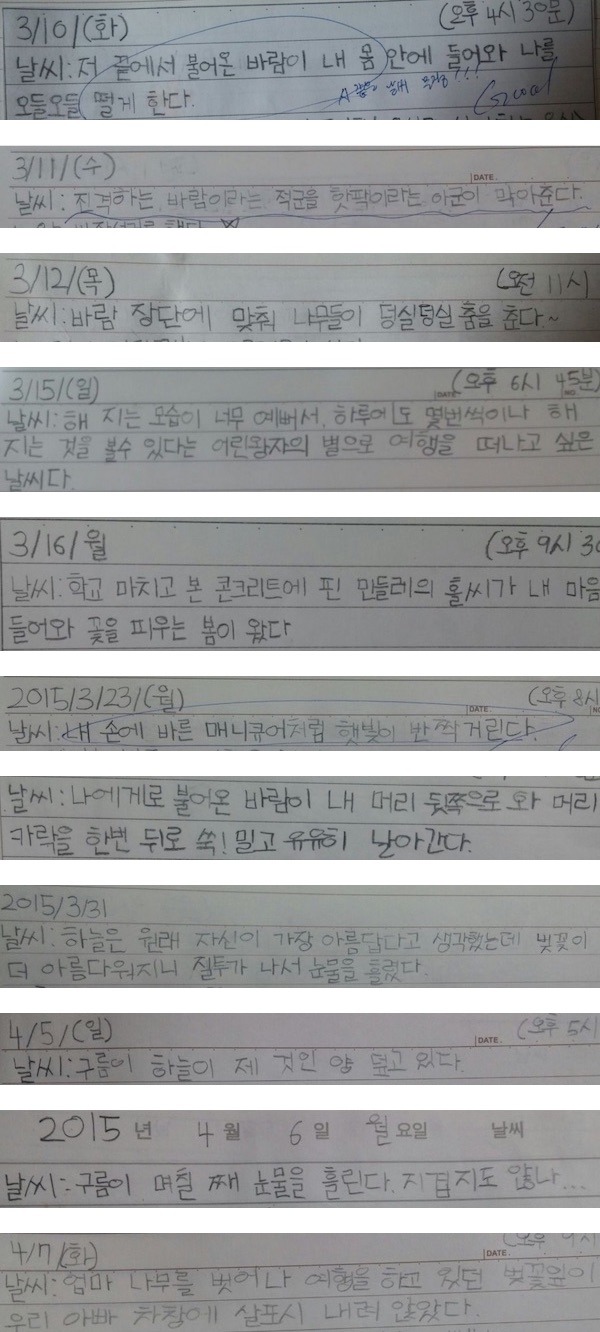 3/10/(화) (오후 4시 30분)
날씨: 저 끝에서 불어온 바람이 내 몸 안에 들어와 나를
오들오들 떨게 한다. Good
3/11/(수) DATE.
날씨: 진격하는 바람이라는 적군을 핫팩이라는 아군이 막아준다.
3/12/(목) (오전 11시
날씨: 바람 장단에 맞춰 나무들이 덩실덩실 춤을 춘다.~
3/15/(일) DATE (오후 6시 45분) NO
날씨: 해 지는 모습이 너무 예뻐서, 하루에도 몇번씩이나 해
지는 것을 볼수 있다는 어린왕자의 별으로 여행을 떠나고 싶은
날씨다.
3/16/월 (오후 9시 30
날씨: 학교 마치고 본 콘크리트에 핀 민들레의 홀씨가 내 마음
들어와 꽃을 피우는 봄이 왔다
2015/3/23/(월) DATE. (오후 8시
날씨: 내 손에 바른 매니큐어처럼 햇빛이 반짝거린다.
날씨: 나에게로 불어온 바람이 내 머리 뒷쪽으로 와 머리
카락을 한번 뒤로 쑥! 밀고 유유히 날아간다.
2015/3/31
날씨: 하늘은 원래 자신이 가장 아름답다고 생각했는데 벚꽃이
더 아름다워지니 질투가 나서 눈물을 흘렸다.
4/5/(일) DATE. (오후 5시
날씨: 구름이 하늘이 제 것인 양 덮고 있다.
2015 년 4 월 6 일 월 요일 날씨
날씨: 구름이 며칠 째 눈물을 흘린다. 지겹지도 않나...
4/7/(화) DATE. (오후 9시
날씨: 엄마 나무를 벗어나 여행을 하고 있던 벚꽃잎이
우리 아빠 차창에 살포시 내려 앉았다.